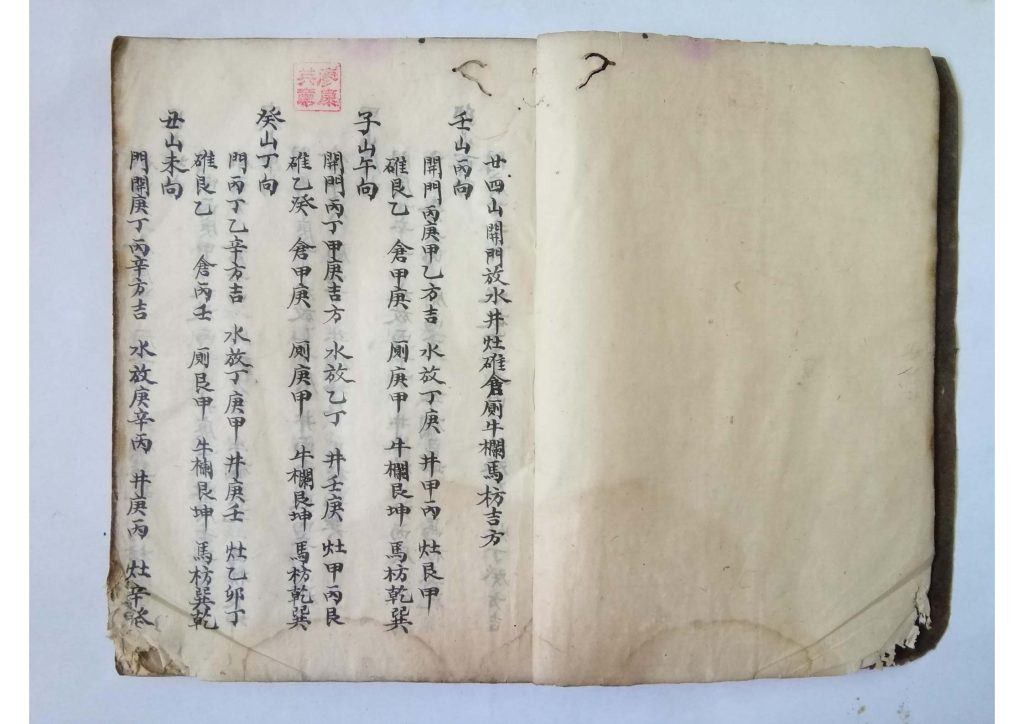 廿四山開門放水井灶碓倉厠牛欄馬枋吉方
壬山丙向
開門丙庚甲乙方吉 水放丁庚 井甲丙 灶艮甲
碓艮乙 倉甲庚 厠庚甲 牛欄艮坤 馬枋乾巽
子山午向
開門丙丁甲庚吉方 水放乙丁 井壬庚 灶甲丙艮
碓乙癸 倉甲庚 厠庚甲 牛欄艮坤 馬枋乾巽
癸山丁向
門丙丁乙辛方吉 水放丁庚甲 井庚壬 灶乙卯丁
碓艮乙 倉丙壬 厠艮甲 牛欄艮坤 馬枋巽乾
丑山未向
門開庚丁丙辛方吉 水放庚辛丙 井庚丙 灶辛